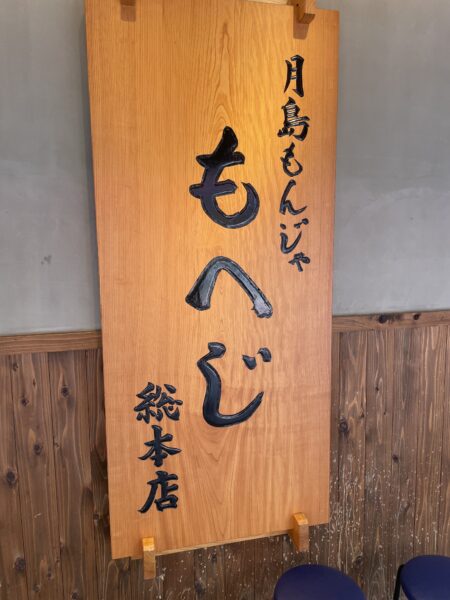 月島もんじゃ
もへじ
総本店